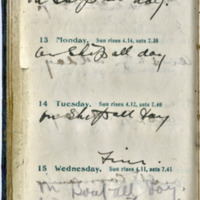 on Ship all day.
13 Monday. Sun rises 4.13, sets 7.38
on Ship all day
14 Tuesday. Sun rises 4.12, sets 7.40
on Ship all day
Fine.
15 Wednesday. Sun rises 4.11, sets 7.41
on boat all day.